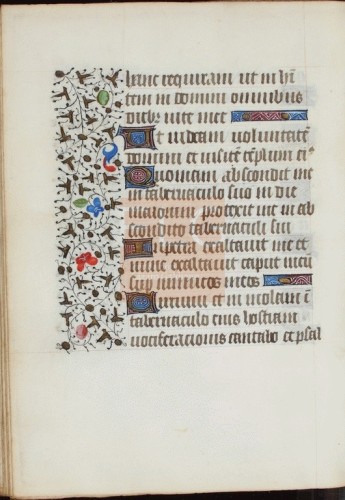 hanc requiram ut in hī
tem in domini omnibus
dieb3 vite mee
Ut videam voluntatē
domini et visitē tēplum ei9
Quoniam abscondit me
in tabernaculo suo in die
malorum protexit me in ab
scondito tabernaculi sui
In petra exaltavit me et
nunc exaltavit caput meū
sup inimicos meos
Circuivi et inmolavi ī
tabernaculo eius hostiam
vociferacionis cantabo et psal